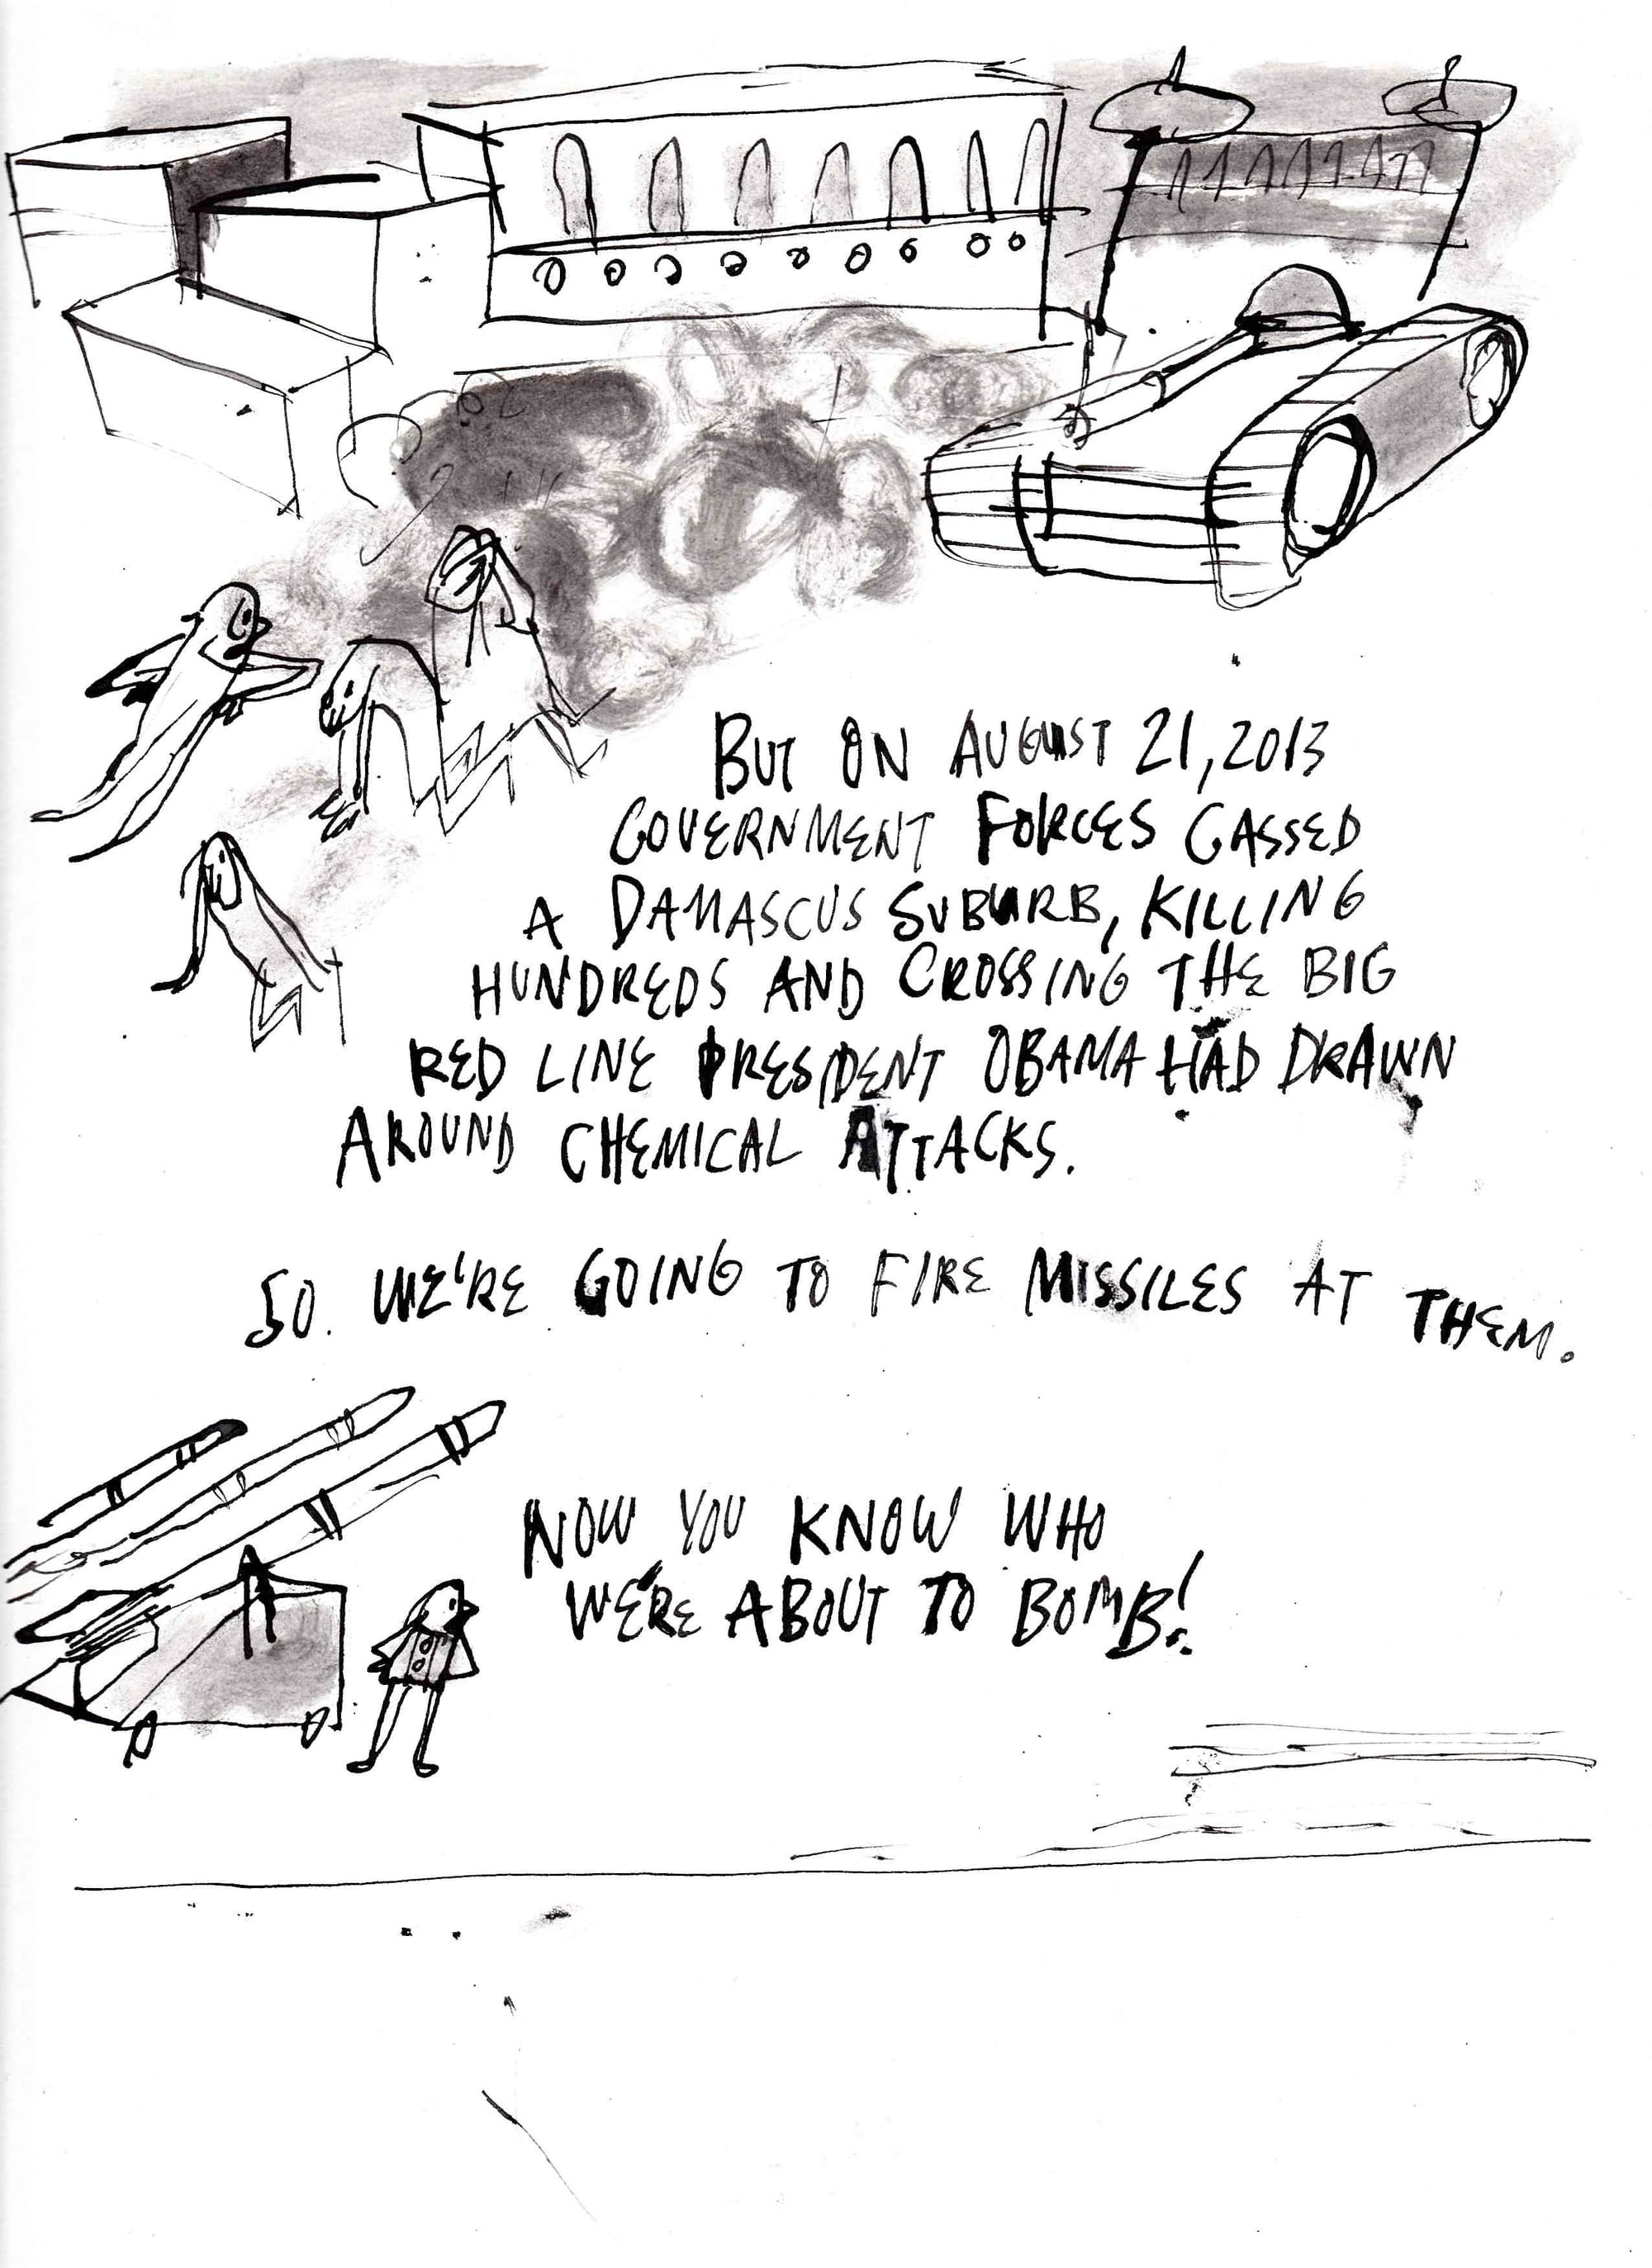 BUT ON AUGUST 21, 2013
GOVERNMENT FORCES GASSED
A DAMASCUS SUBURB, KILLING
HUNDREDS AND CROSSING THE BIG
RED LINE PRESIDENT OBAMA HAD DRAWN
AROUND CHEMICAL ATTACKS.
SO. WE'RE GOING TO FIRE MISSILES AT THEM.
NOW YOU KNOW WHO
WE'RE ABOUT TO BOMB!